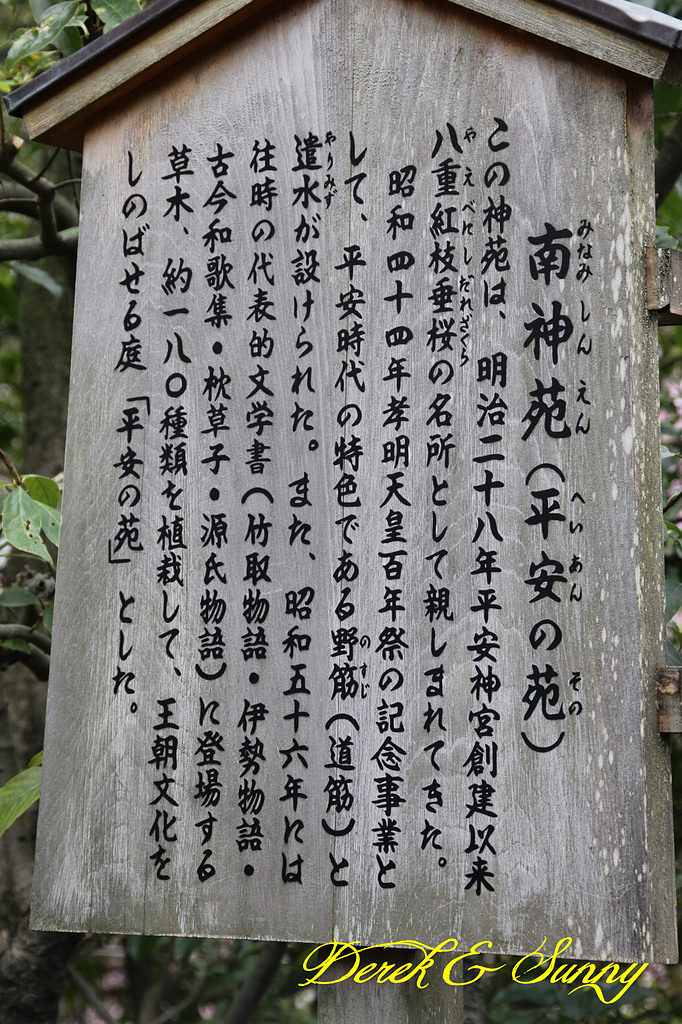 南神苑（平安の苑）
みなみ しん えん へい あん その
この神苑は、明治二十八年平安神宮創建以来
八重紅枝垂桜の名所として親しまれてきた。
や え べに し だれ ざくら
昭和四十四年孝明天皇百年祭の記念事業と
して、平安時代の特色である野筋（道筋）と
のすじ
遣水が設けられた。また、昭和五十六年には
やりみず
往時の代表的文学書（竹取物語・伊勢物語・
古今和歌集・枕草子・源氏物語）に登場する
草木、約一八〇種類を植栽して、王朝文化を
しのばせる庭「平安の苑」とした。
Derek & Sunny